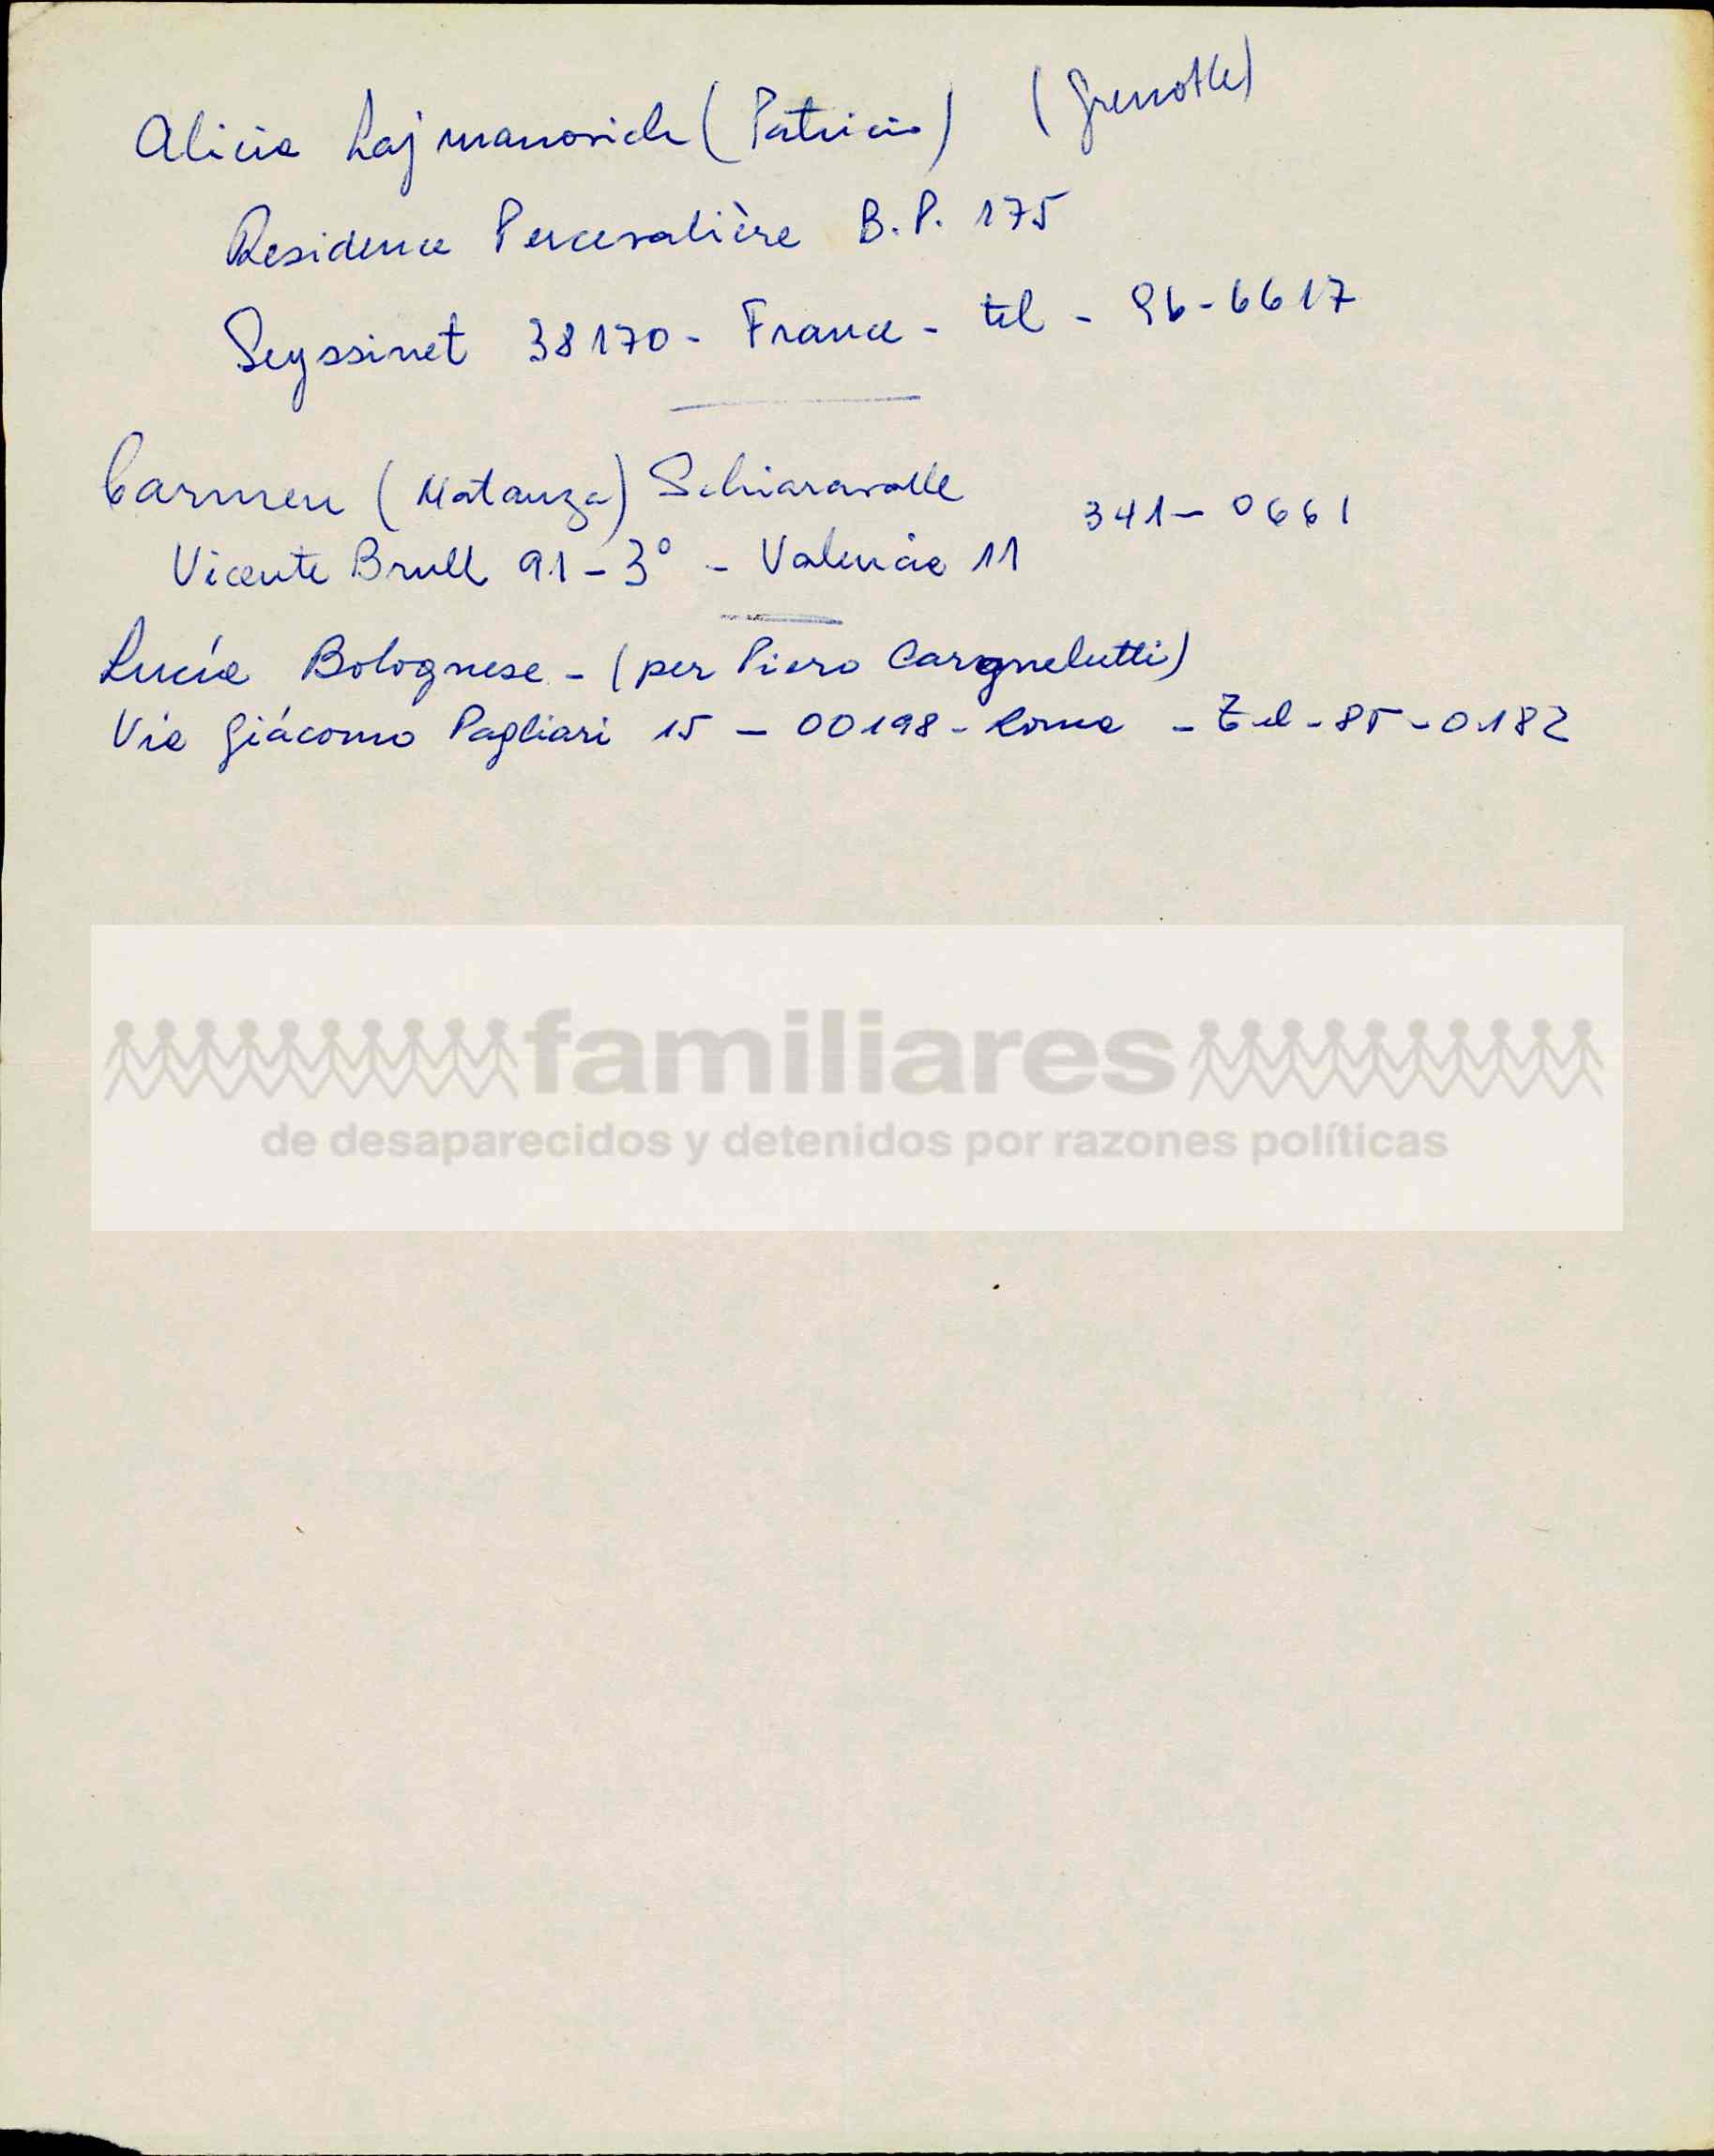 Alicia Lajmanovich (Patricio) (Grenoble)
Residence Percevalière B.P. 175
Seyssinet 38170 - France - tel - 96-6617
Carmen (Matanza) Schiaravalle 341-0661
Vicente Brull 91-3° - Valencia 11
Lucía Bolognese - (per Piero Cargnelutti)
Vía Giácomo Pagliari 15 - 00198 - Roma - Tel - 85-0182
familiares
de desaparecidos y detenidos por razones políticas